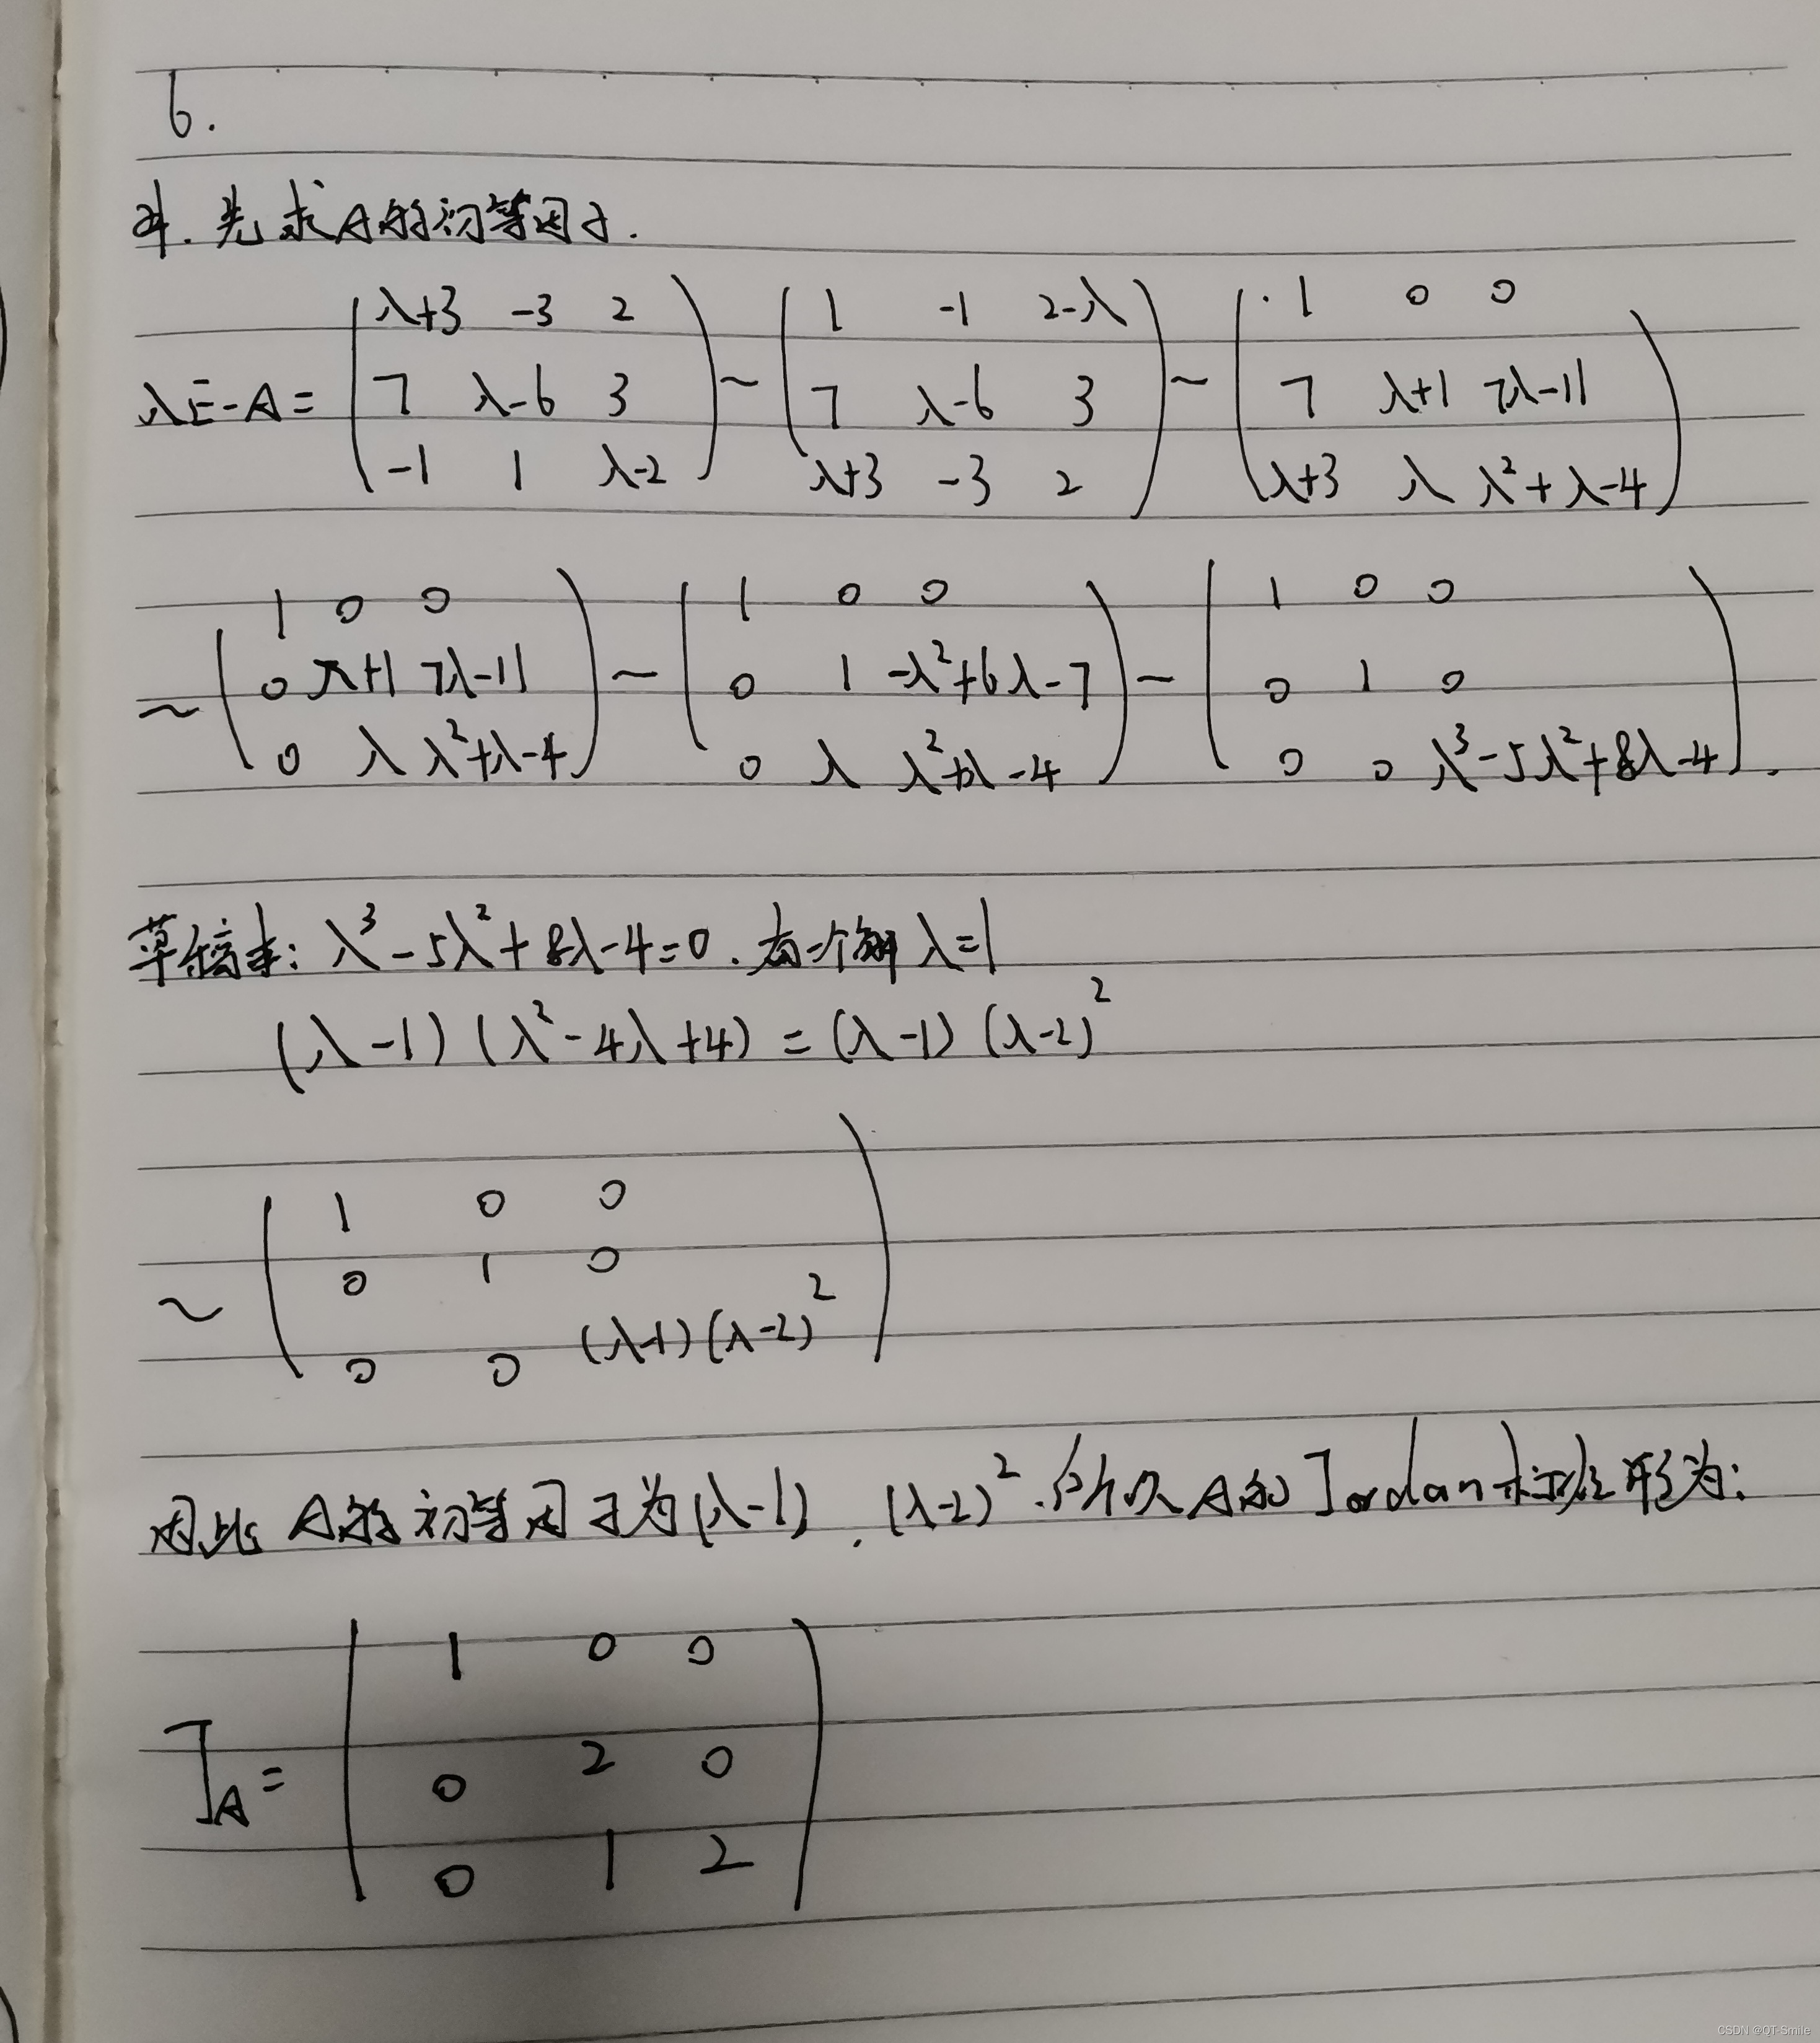 6.
解. 先求A的初等因子.
λE-A= ( λ+3 -3 2 ; 7 λ-6 3 ; -1 1 λ-2 ) ~ ( 1 -1 2-λ ; 7 λ-6 3 ; λ+3 -3 2 ) ~ ( 1 0 0 ; 7 λ+1 7λ-11 ; λ+3 λ λ²+λ-4 )
~ ( 1 0 0 ; 0 λ+1 7λ-11 ; 0 λ λ²+λ-4 ) ~ ( 1 0 0 ; 0 1 -λ²+6λ-7 ; 0 λ λ²+λ-4 ) ~ ( 1 0 0 ; 0 1 0 ; 0 0 λ³-5λ²+8λ-4 ).
草稿本: λ³-5λ²+8λ-4=0. 有一个解 λ=1
(λ-1)(λ²-4λ+4)=(λ-1)(λ-2)²
~ ( 1 0 0 ; 0 1 0 ; 0 0 (λ-1)(λ-2)² )
因此 A的初等因子为(λ-1), (λ-2)². 所以A的Jordan标准形为:
J_A= ( 1 0 0 ; 0 2 0 ; 0 1 2 )
CSDN @QT-Smile